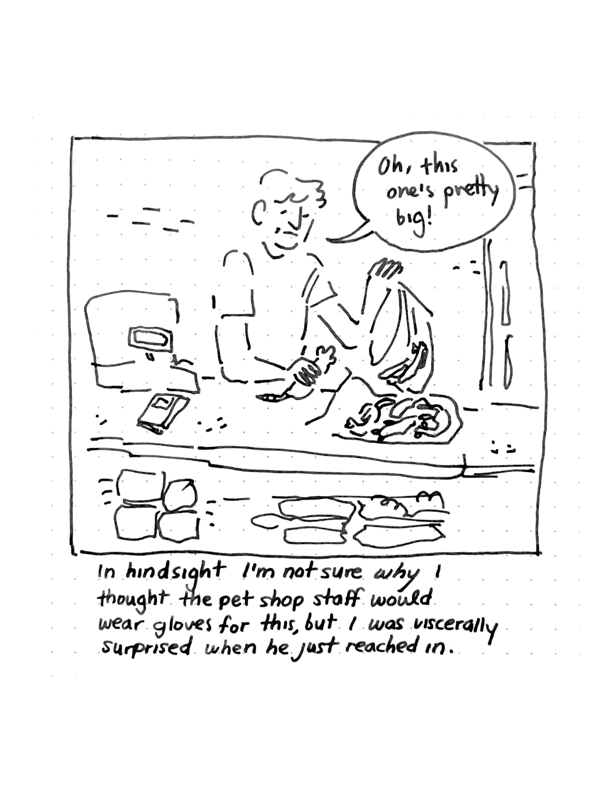 Oh, this
one's pretty
big!
In hindsight I'm not sure why I
thought the pet shop staff would
wear gloves for this, but I was viscerally
surprised when he just reached in.